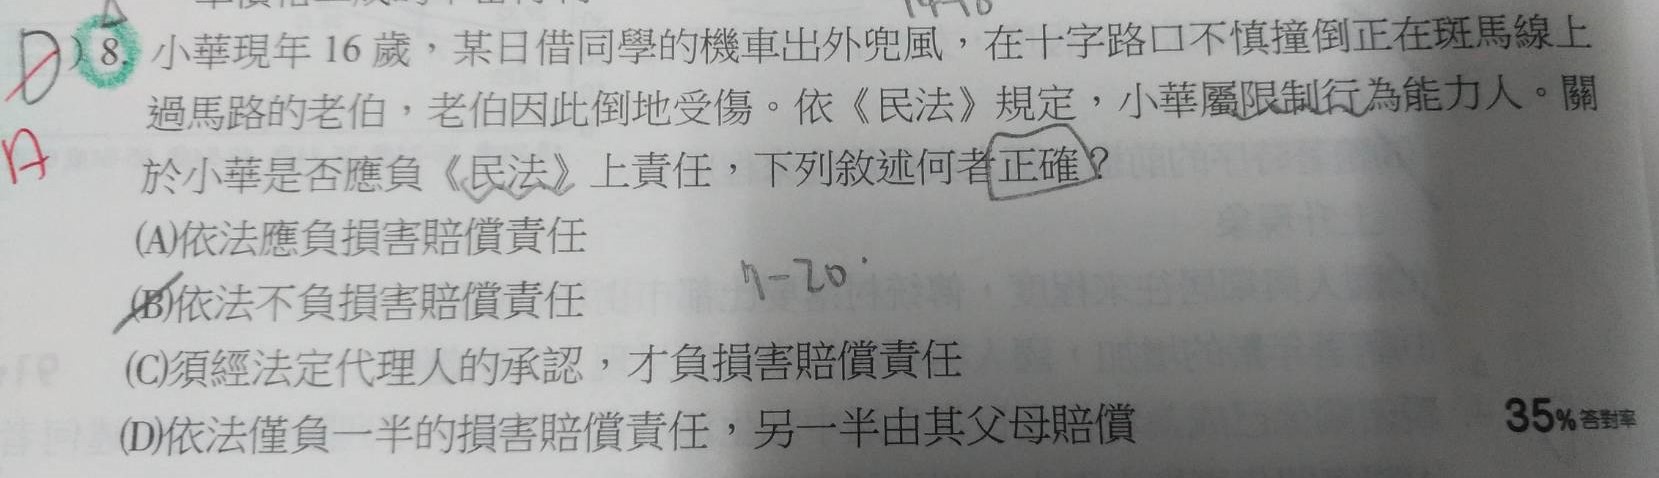 D) 8. 小華現年 16 歲，某日借同學的機車出外兜風，在十字路口不慎撞倒正在斑馬線上
過馬路的老伯，老伯因此倒地受傷。依《民法》規定，小華屬限制行為能力人。關
A 於小華是否應負《民法》上責任，下列敘述何者正確？
(A)依法應負損害賠償責任
(B)依法不負損害賠償責任
7-20
(C)須經法定代理人的承認，才負損害賠償責任
(D)依法僅負一半的損害賠償責任，另一半由其父母賠償
35%答對率